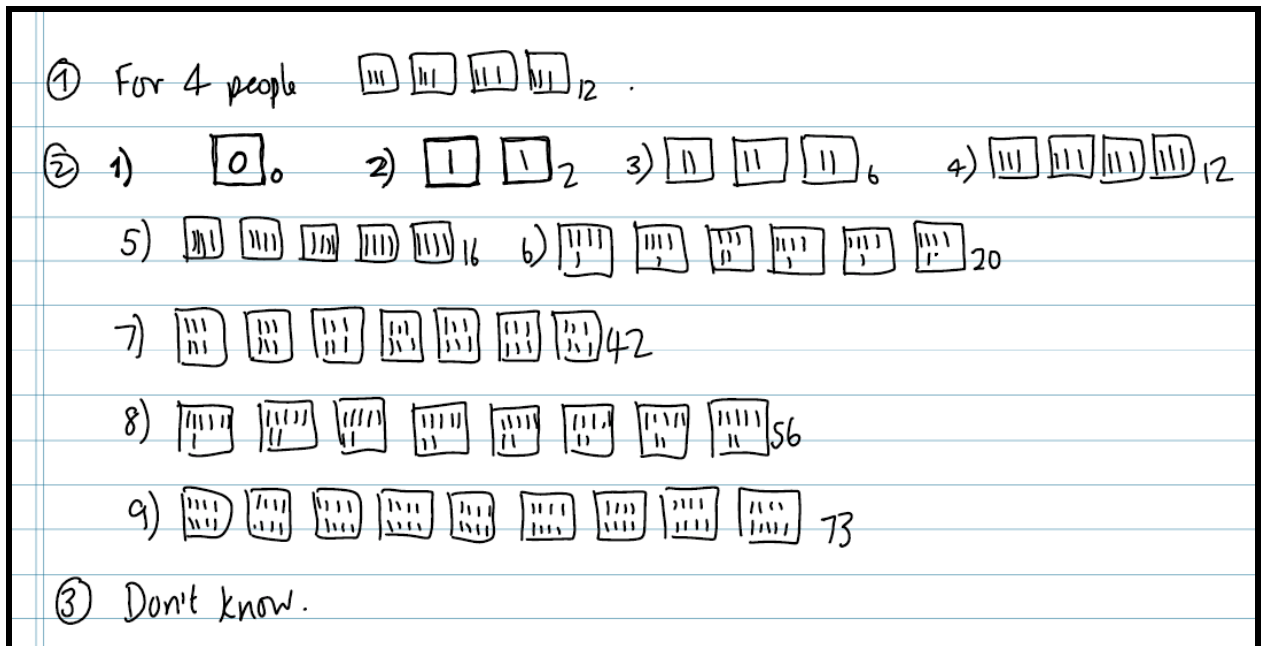 ① For 4 people ||| ||| ||| ||| 12 .
② 1) 0 0 2) | | 2 3) || || || 6 4) ||| ||| ||| ||| 12
5) |||| |||| |||| |||| |||| 16 6) 20
7) 42
8) 56
9) 73
③ Don't know.